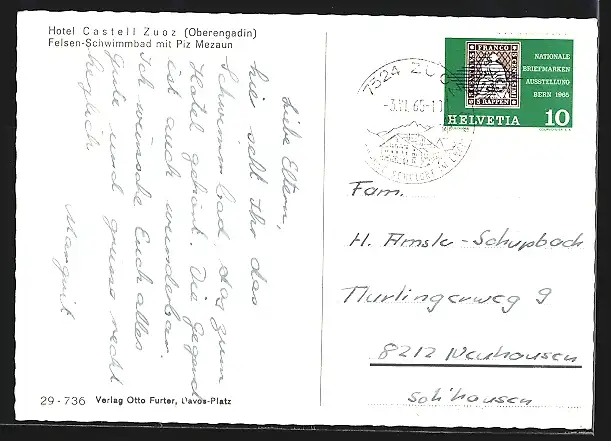 Hotel Castell Zuoz (Oberengadin)
Felsen-Schwimmbad mit Piz Mezaun
Liebe Eltern,
hie seht Ihr das
Schwimmbad, das zum
Hotel gehört. Die Gegend
ist auch wunderbar.
Ich wünsche Euch alles
Gute und grüsse recht
herzlich
Margrit
29 - 736 Verlag Otto Furter, Davos-Platz
7524 ZUOZ
FRANCO
5 RAPPEN
NATIONALE
BRIEFMARKEN
AUSSTELLUNG
BERN 1965
HELVETIA 10
Fam.
H. Amsler-Schupbach
Flurlingerweg 9
8212 Neuhausen